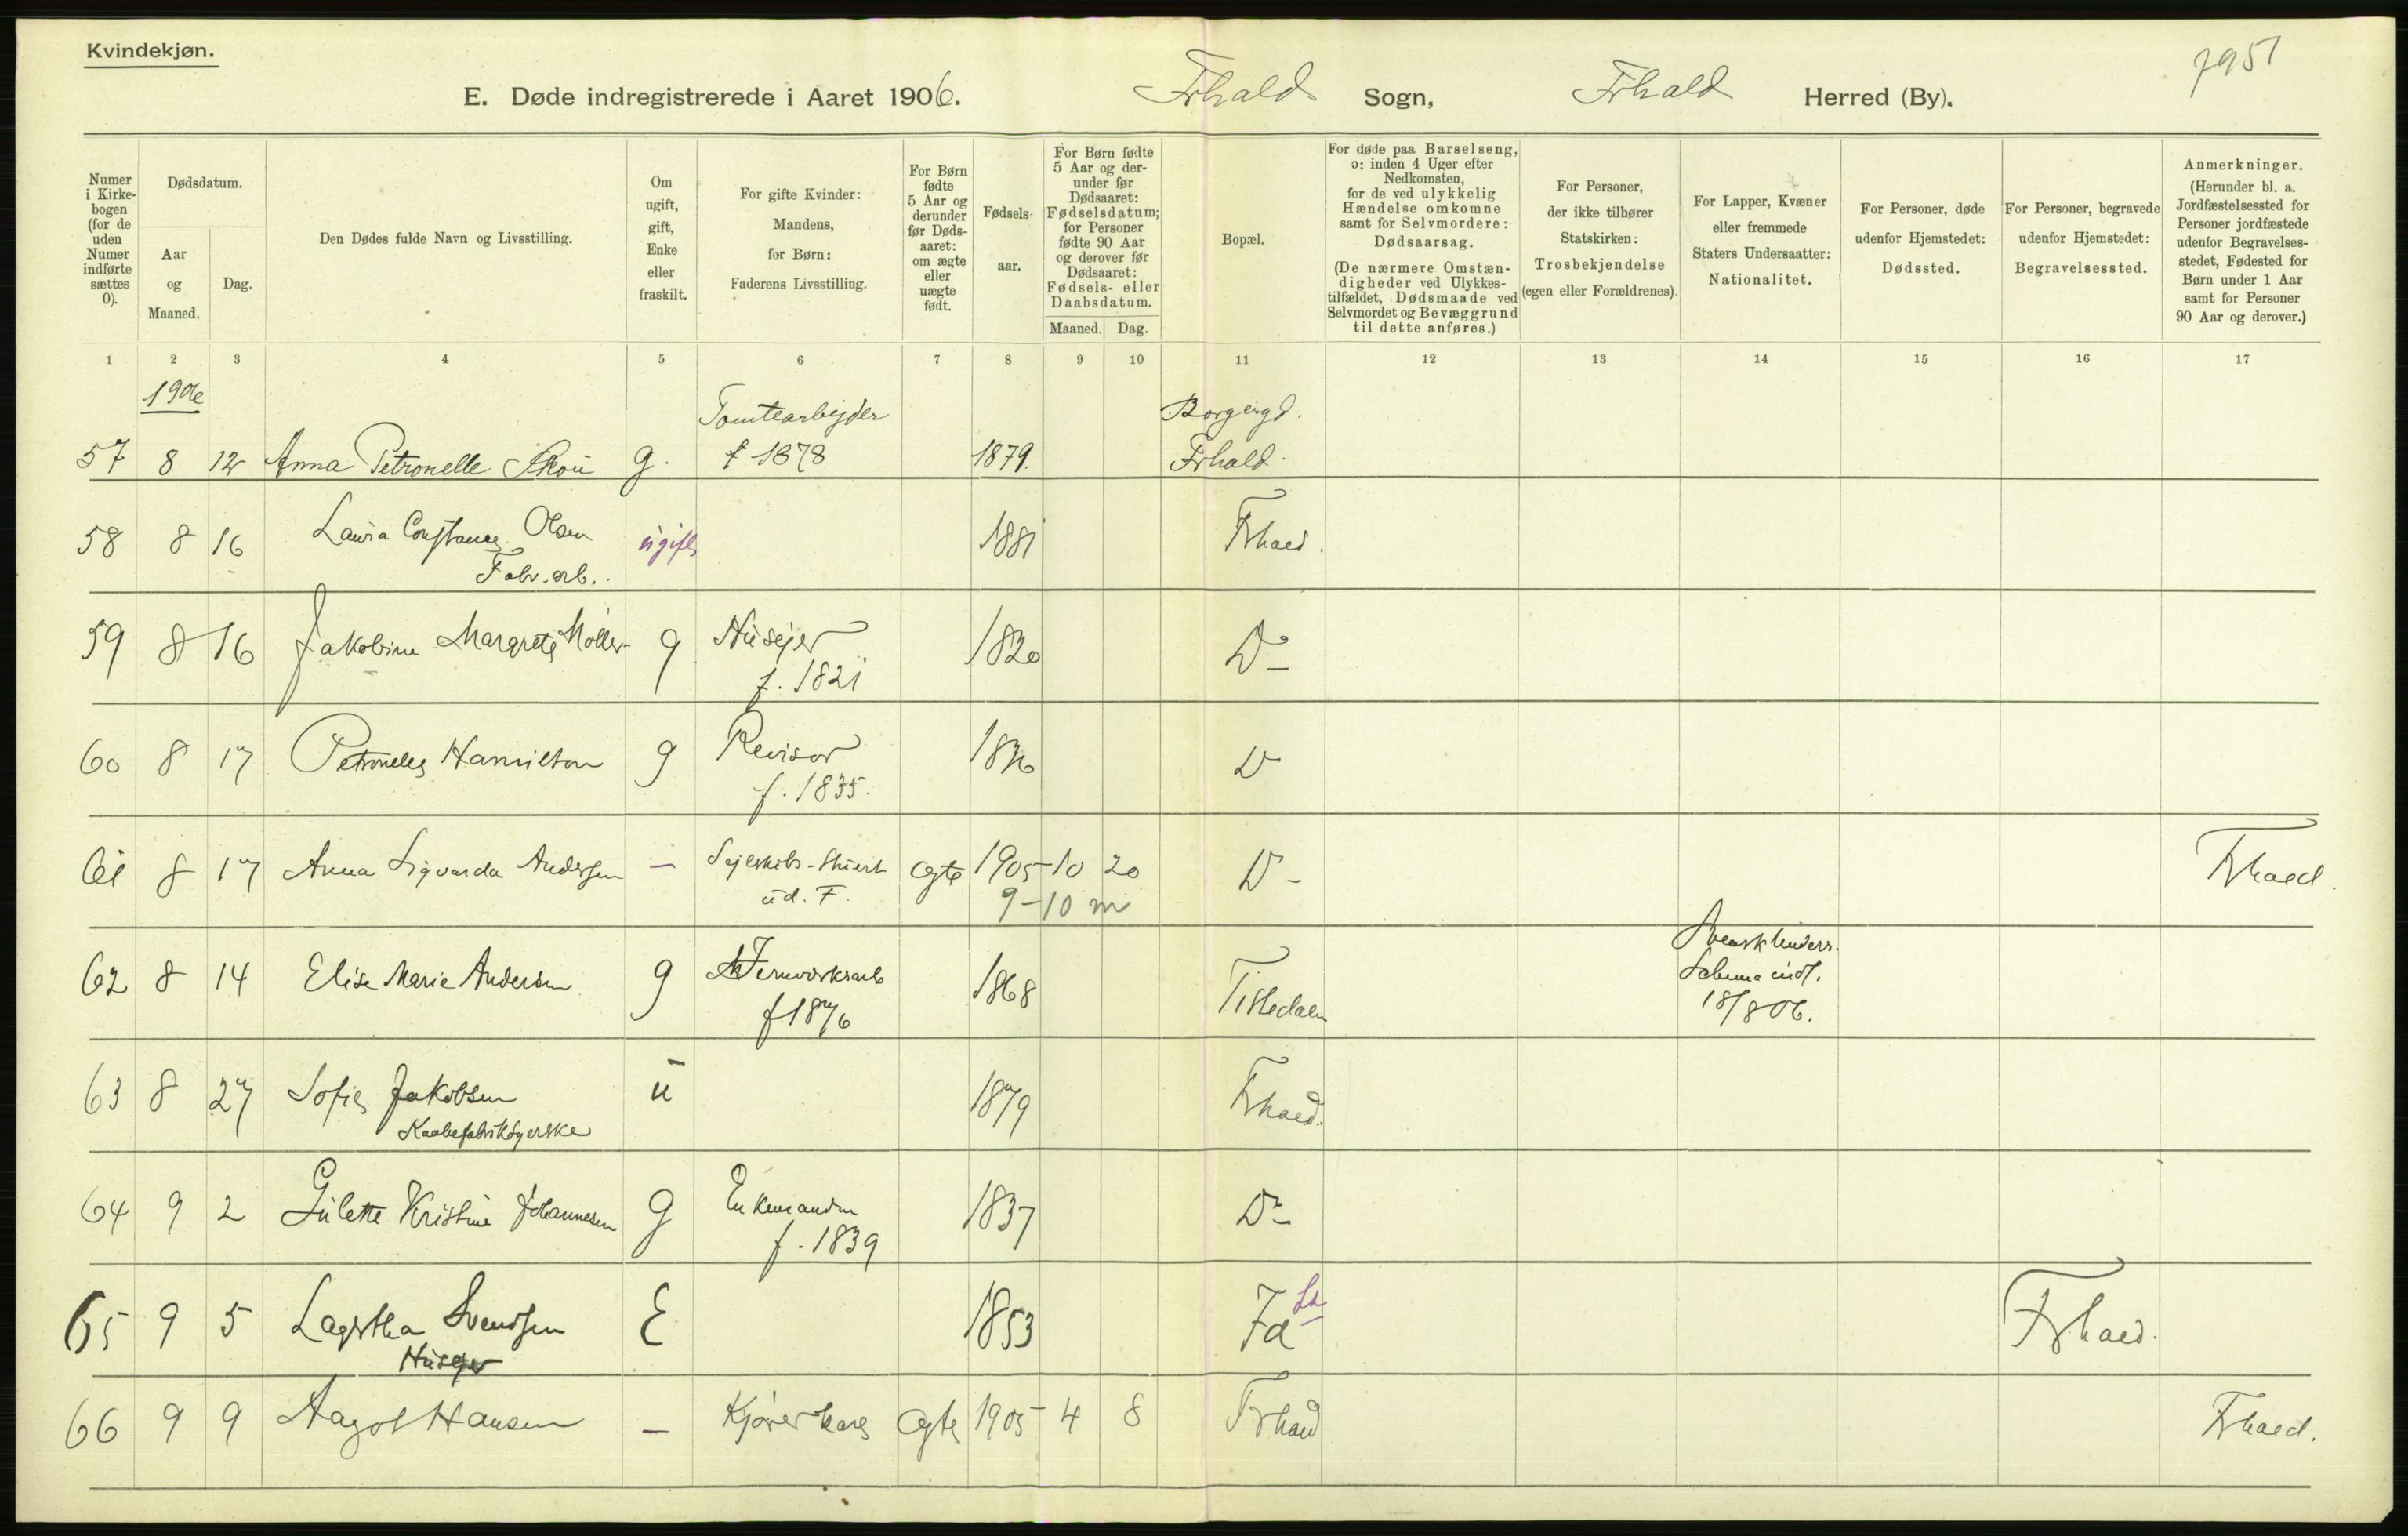 Kvindekjøn.
7951
E. Døde indregistrerede i Aaret 1906. Frhald Sogn, Frhald Herred (By).
Numer i Kirkebogen (for de uden Numer indførte sættes 0).
Dødsdatum.
Aar og Maaned.
Dag.
Den Dødes fulde Navn og Livsstilling.
Om ugift, gift, Enke eller fraskilt.
For gifte Kvinder: Mandens, for Børn: Faderens Livsstilling.
For Børn fødte 5 Aar og derunder før Dødsaaret: om ægte eller uægte født.
Fødselsaar.
For Børn fødte 5 Aar og derunder før Dødsaaret: Fødselsdatum; for Personer fødte 90 Aar og derover før Dødsaaret: Fødsels- eller Daabsdatum.
Maaned. Dag.
Bopæl.
For døde paa Barselseng, ɔ: inden 4 Uger efter Nedkomsten, for de ved ulykkelig Hændelse omkomne samt for Selvmordere: Dødsaarsag. (De nærmere Omstændigheder ved Ulykkestilfældet, Dødsmaade ved Selvmordet og Bevæggrund til dette anføres.)
For Personer, der ikke tilhører Statskirken: Trosbekjendelse (egen eller Forældrenes).
For Lapper, Kvæner eller fremmede Staters Undersaatter: Nationalitet.
For Personer, døde udenfor Hjemstedet: Dødssted.
For Personer, begravede udenfor Hjemstedet: Begravelsessted.
Anmerkninger. (Herunder bl. a. Jordfæstelsessted for Personer jordfæstede udenfor Begravelsesstedet, Fødested for Børn under 1 Aar samt for Personer 90 Aar og derover.)
1 2 3 4 5 6 7 8 9 10 11 12 13 14 15 16 17
1906
Tomtearbejder Borgergd.
57 8 12 Anna Petronelle Skou g. f 1878 1879. Frhald.
58 8 16 Laura Constance Olsen ugift 1881 Frhald.
Fabr. arb.
59 8 16 Jakobine Margrete Møller g Husejer 1820 Do
f. 1821
60 8 17 Petronelle Hamilton g Revisor 1836 Do
f. 1835.
61 8 17 Anna Sigvarda Andersen — Sejlskibs-Stuert ægte 1905 10 20 Do Frhald.
ud. F. 9-10 m
62 8 14 Elise Marie Andersen g Jernværksarb 1868 Tistedalen Svensk Unders.
f 1876 18/8 06.
63 8 27 Sofie Jakobsen u 1879 Frhald.
Kaabefabriksyerske
64 9 2 Gulette Kristine Johannesen g 1837 Do
f. 1839
65 9 5 Lagertha Svendsen E 1853 Id Frhald.
Husejer
66 9 9 Aagot Hansen — Kjørerkarl ægte 1905 4 8 Frhald Frhald.